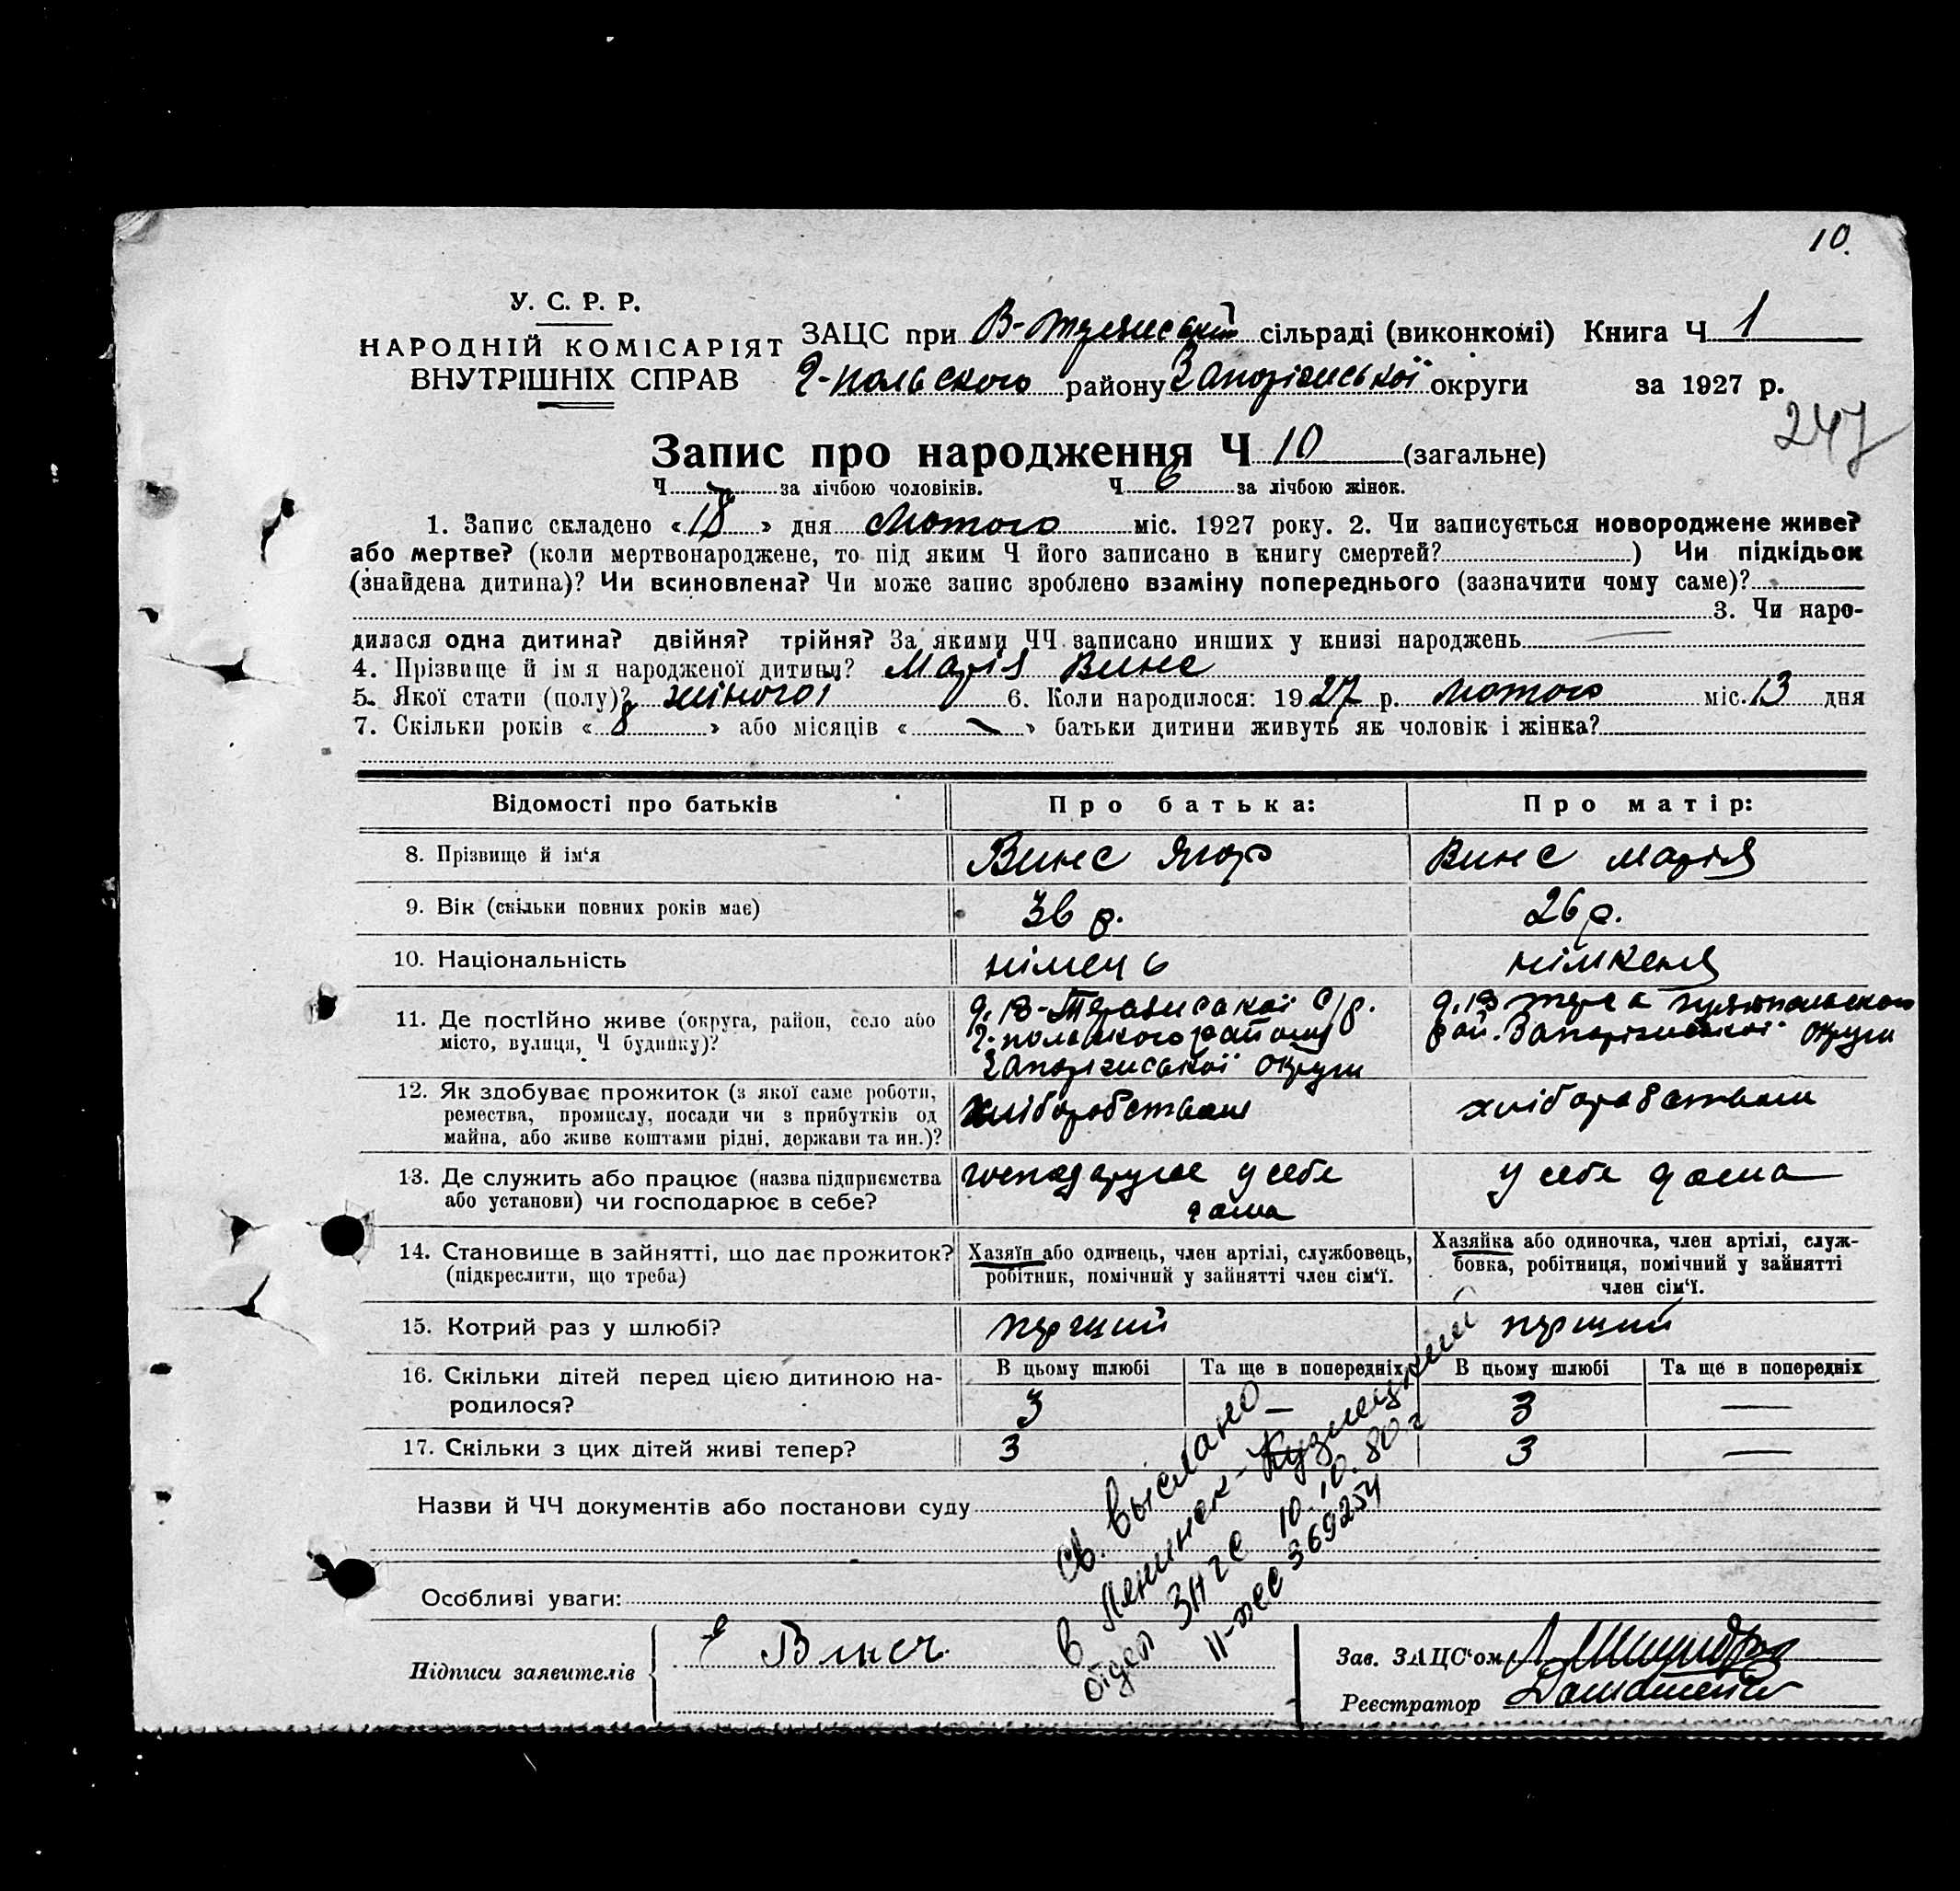 10.
У. С. Р. Р.
НАРОДНІЙ КОМІСАРІЯТ
ВНУТРІШНІХ СПРАВ
ЗАЦС при В- сільраді (виконкомі) Книга Ч 1
Г-польского району Запоріжської округи за 1927 р.
247
Запис про народження Ч 10 (загальне)
Ч за лічбою чоловіків. Ч 6 за лічбою жінок.
1. Запис складено «18» дня Лютого міс. 1927 року. 2. Чи записується новороджене живе?
або мертве? (коли мертвонароджене, то під яким Ч його записано в книгу смертей?) Чи підкідьок
(знайдена дитина)? Чи всиновлена? Чи може запис зроблено взаміну попереднього (зазначити чому саме)?
3. Чи наро-
дилася одна дитина? двійня? трійня? За якими ЧЧ записано инших у книзі народжень
4. Прізвище й ім я народженої дитини? Марія Винс
5. Якої стати (полу)? жіночої 6. Коли народилося: 1927 р. Лютого міс. 13 дня
7. Скільки років «8» або місяців « — » батьки дитини живуть як чоловік і жінка?
Відомості про батьків Про батька: Про матір:
8. Прізвище й ім‘я Винс Ягор Винс Марія
9. Вік (скільки повних років має) 36 р. 26 р.
10. Національність німець німкеня
11. Де постійно живе (округа, район, село або
місто, вулиця, Ч будинку)?
с/р.
Г-польского району
Запоріжської округи
гуляйпольского
рай. Запоріжської округи
12. Як здобуває прожиток (з якої саме роботи,
ремества, промислу, посади чи з прибутків од
майна, або живе коштами рідні, держави та ин.)?
хліборобством хліборобством
13. Де служить або працює (назва підприємства
або установи) чи господарює в себе?
господарує у себе
дома
у себе дома
14. Становище в зайнятті, що дає прожиток?
(підкреслити, що треба)
Хазяїн або одинець, член артілі, службовець,
робітник, помічний у зайнятті член сім‘ї.
Хазяйка або одиночка, член артілі, служ-
бовка, робітниця, помічний у зайнятті
член сім‘ї.
15. Котрий раз у шлюбі? перший перший
16. Скільки дітей перед цією дитиною на-
родилося?
В цьому шлюбі Та ще в попередніх В цьому шлюбі Та ще в попередніх
3 — 3 —
17. Скільки з цих дітей живі тепер? 3 3 —
Назви й ЧЧ документів або постанови суду
Особливі уваги:
св. выслано
в Ленинск-Кузнецкий
отдел ЗАГС 10.10.80 г
II-ЖС 369254
Підписи заявителів Е Винс
Зав. ЗАЦС‘ом
Реєстратор